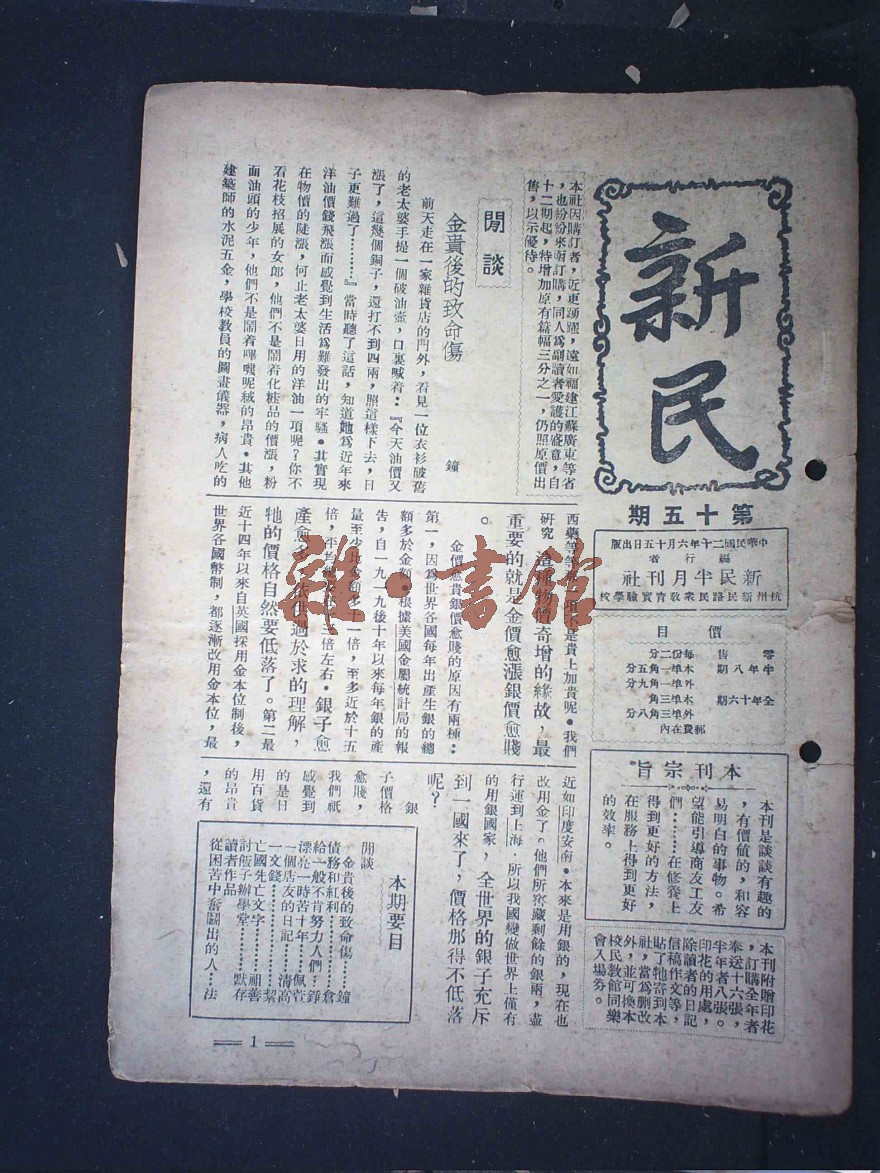 新民
第十五期
中華民國二十年六月十五日出版
編行者
新民半月刊社
杭州新民路民衆教育實驗學校
價目
零售 每份二分
半年八期 本埠一角五分
外埠一角九分
全年十六期 本埠三角
外埠三角八分
郵費在內
本刊宗旨
本刊是談談有趣的
，有價值的，和容
易明白的事物。希
望能引導商友工友
們：……在修養上
得到更好的方法，
在服務上得到更好
的效率。
本刊附贈印花
，訂購全年者
奉送十六張，
半年者八張。
印花的用處，
除讀者的日記
信稿作文等，
貼了牠寄到本
社，當爲删改
外，並可換本
校民敎館同樂
會入場劵。
本社因購訂者，近更踴躍，遠如福建江蘇廣東等省
，也紛紛來函訂購，同人爲副讀者愛護的盛意，自
十二期起，特增加原有篇幅三分之一，仍照原價出
售，以示優待。
閒談
金貴後的致命傷
鐘
前天走在一家雜貨店的門外，看見一位衣衫破舊
的老太婆手提一個破油壺，口裏喊着：『今天油價又
漲了，這幾個銅子，還打不到四兩，照這樣下去，日
子更難過了………』當時聽了這話，知道她爲近年來
洋油價錢飛漲而感覺到生活爲難發出的牢騷。其實現
在物價的陡漲，何止老太婆日用的洋油一項呢？你不
看花枝招展的女郎，他們不是鬧着化粧品的價漲，粉
面油頭的少年，他們不是鬧着嗶嘰呢絨的昂貴。其他
建築師的水泥五金，學校教員的圖畫儀器，病人吃的
西藥等等，項不是貴上加貴呢。我們
研究這種物價奇增的緣故，最
重要的就是金價愈漲銀價愈賤
。
金價愈貴銀價愈賤的原因有兩種：
第一，因爲世界各國每年出產生銀的總
額多於金額。根據美國金屬統計局的報
告，自一九一九後十年以來每年銀的產
量至少比金額多十一倍，至多近於十五
倍，平均三倍左右。銀子愈
產愈多，依供過於求的理解，
牠的價格自然要低落了。第二最
近十四年以來自英國採用金本位制後，
世界各國幣制，都逐漸改用金本位，最
近如印度安南。本來是用銀的，現在也
改用金了。他們所窖藏剩餘的銀兩，盡
行運到上海，所以我國變做世界上僅有
的用銀國家，全世界的銀子充斥
到一國來了，價格那得不低落
呢？
銀
子價格
愈賤，
我們祇
感覺到
的是日
用百貨
的昂貴
，還有
本期要目
閒談
金貴後的致命傷……鐘
債務和紅利…………倉
給一般不肯努力人們…錚
漂亮一時苦十年…佩萱
一個店友的日記……清高
一文錢………………絜
亡國先亡文字……祖善
討飯子辦學堂……默存
讀者作品
從困苦中奮鬪出的人…法
1
雜·書館